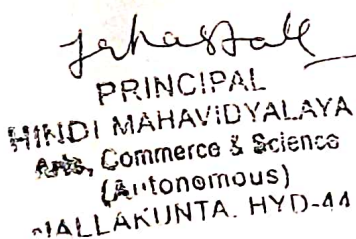 PRINCIPAL
HINDI MAHAVIDYALAYA
Arts, Commerce & Science
(Autonomous)
NALLAKUNTA. HYD-44